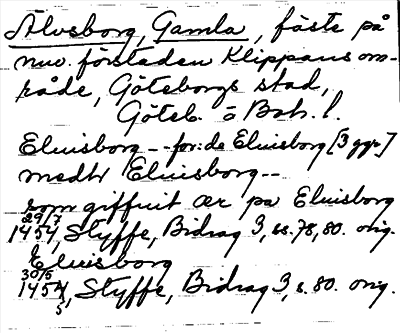 Älvsborg, Gamla, fäste på
nuv. förstaden Klippans om-
råde, Göteborgs stad,
Göteb. o Boh. l.
Eluisborg -- for:de Eluisborg [3 ggr]
medhr Eluisborg --
som giffuit ær pa Eluisborg
29/7
1454, Styffe, Bidrag 3, ss. 78, 80. orig.
Eluisborg
30/5
1454, Styffe, Bidrag 3, s. 80. orig.